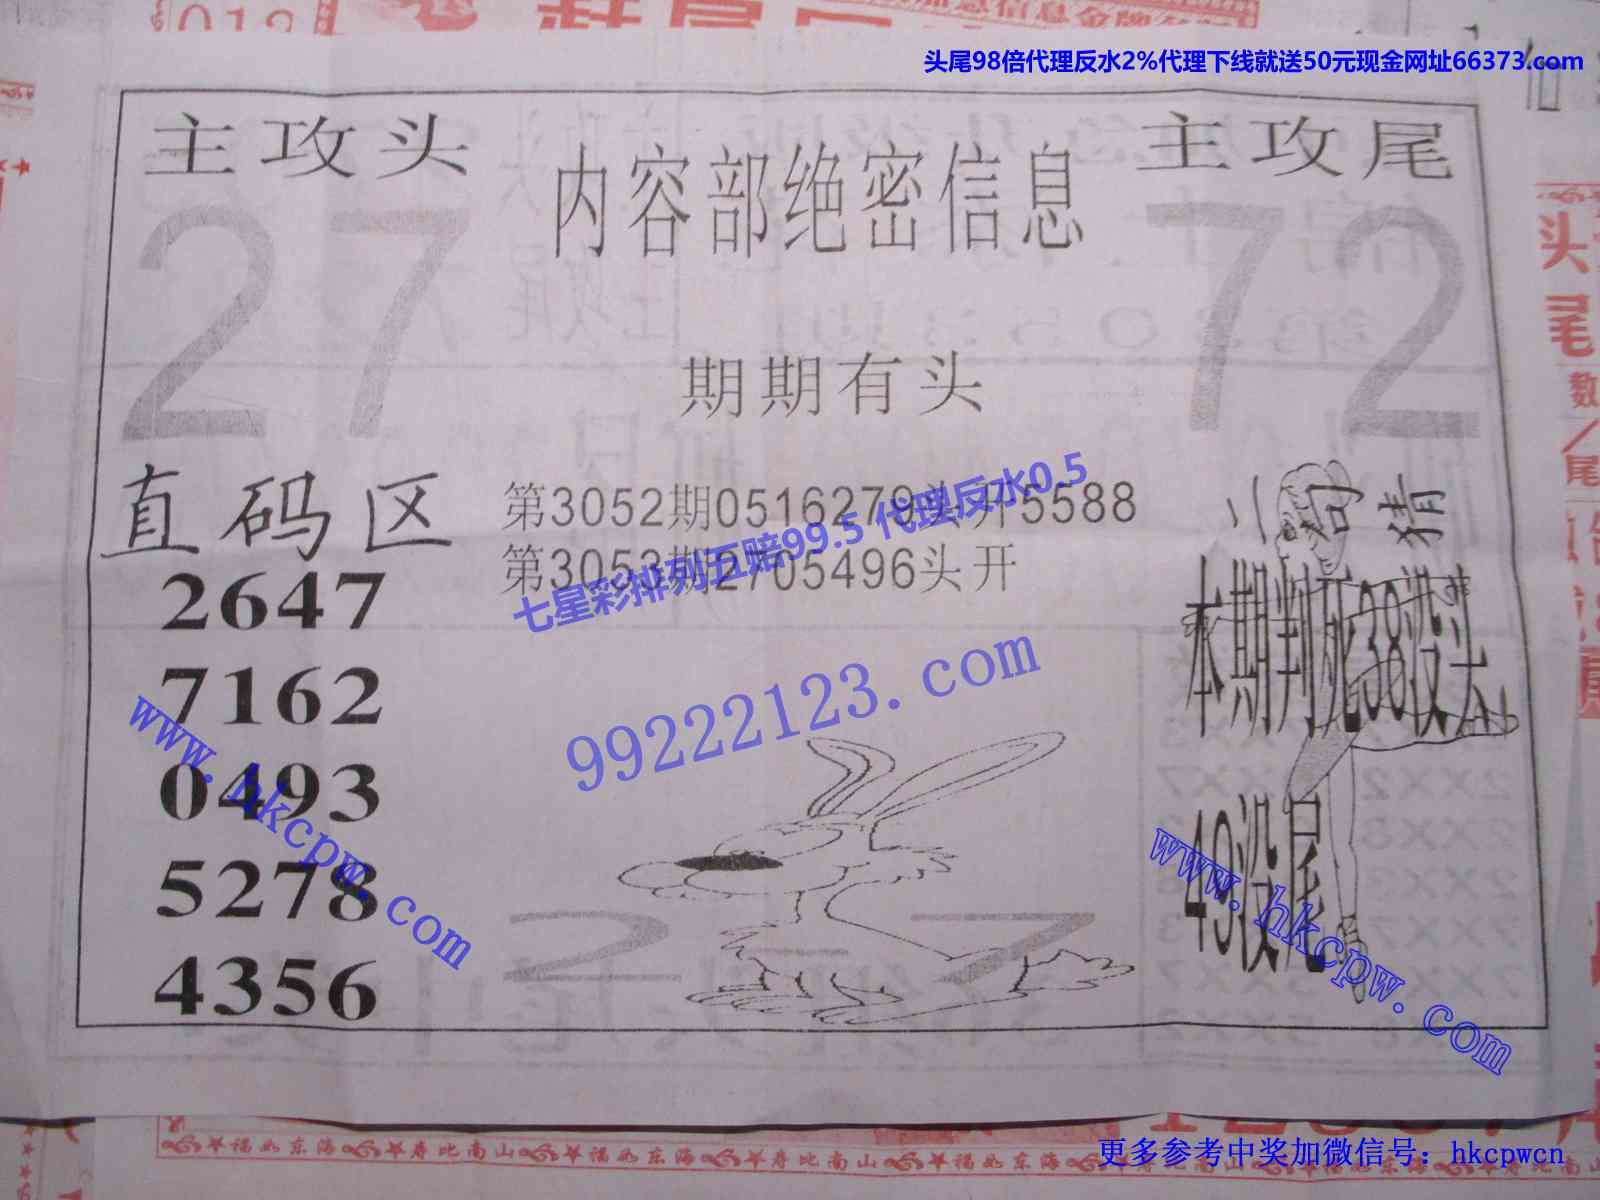 头尾98倍代理反水2%代理下线就送50元现金网址66373.com
主攻头
内容部绝密信息
主攻尾
27
72
期期有头
直码区
第3052期0516279头开5588
第3053期2705496头开
七星彩排列五赔99.5 代理反水0.5
二句猜
本期判死38没头
49没尾
2647
7162
0493
5278
4356
99222123.com
www.hkcpw.com
www.hkcpw.com
27
头尾
数/尾
福如东海 寿比南山 福如东海 寿比南山 福如东海 寿比南山
更多参考中奖加微信号：hkcpwcn